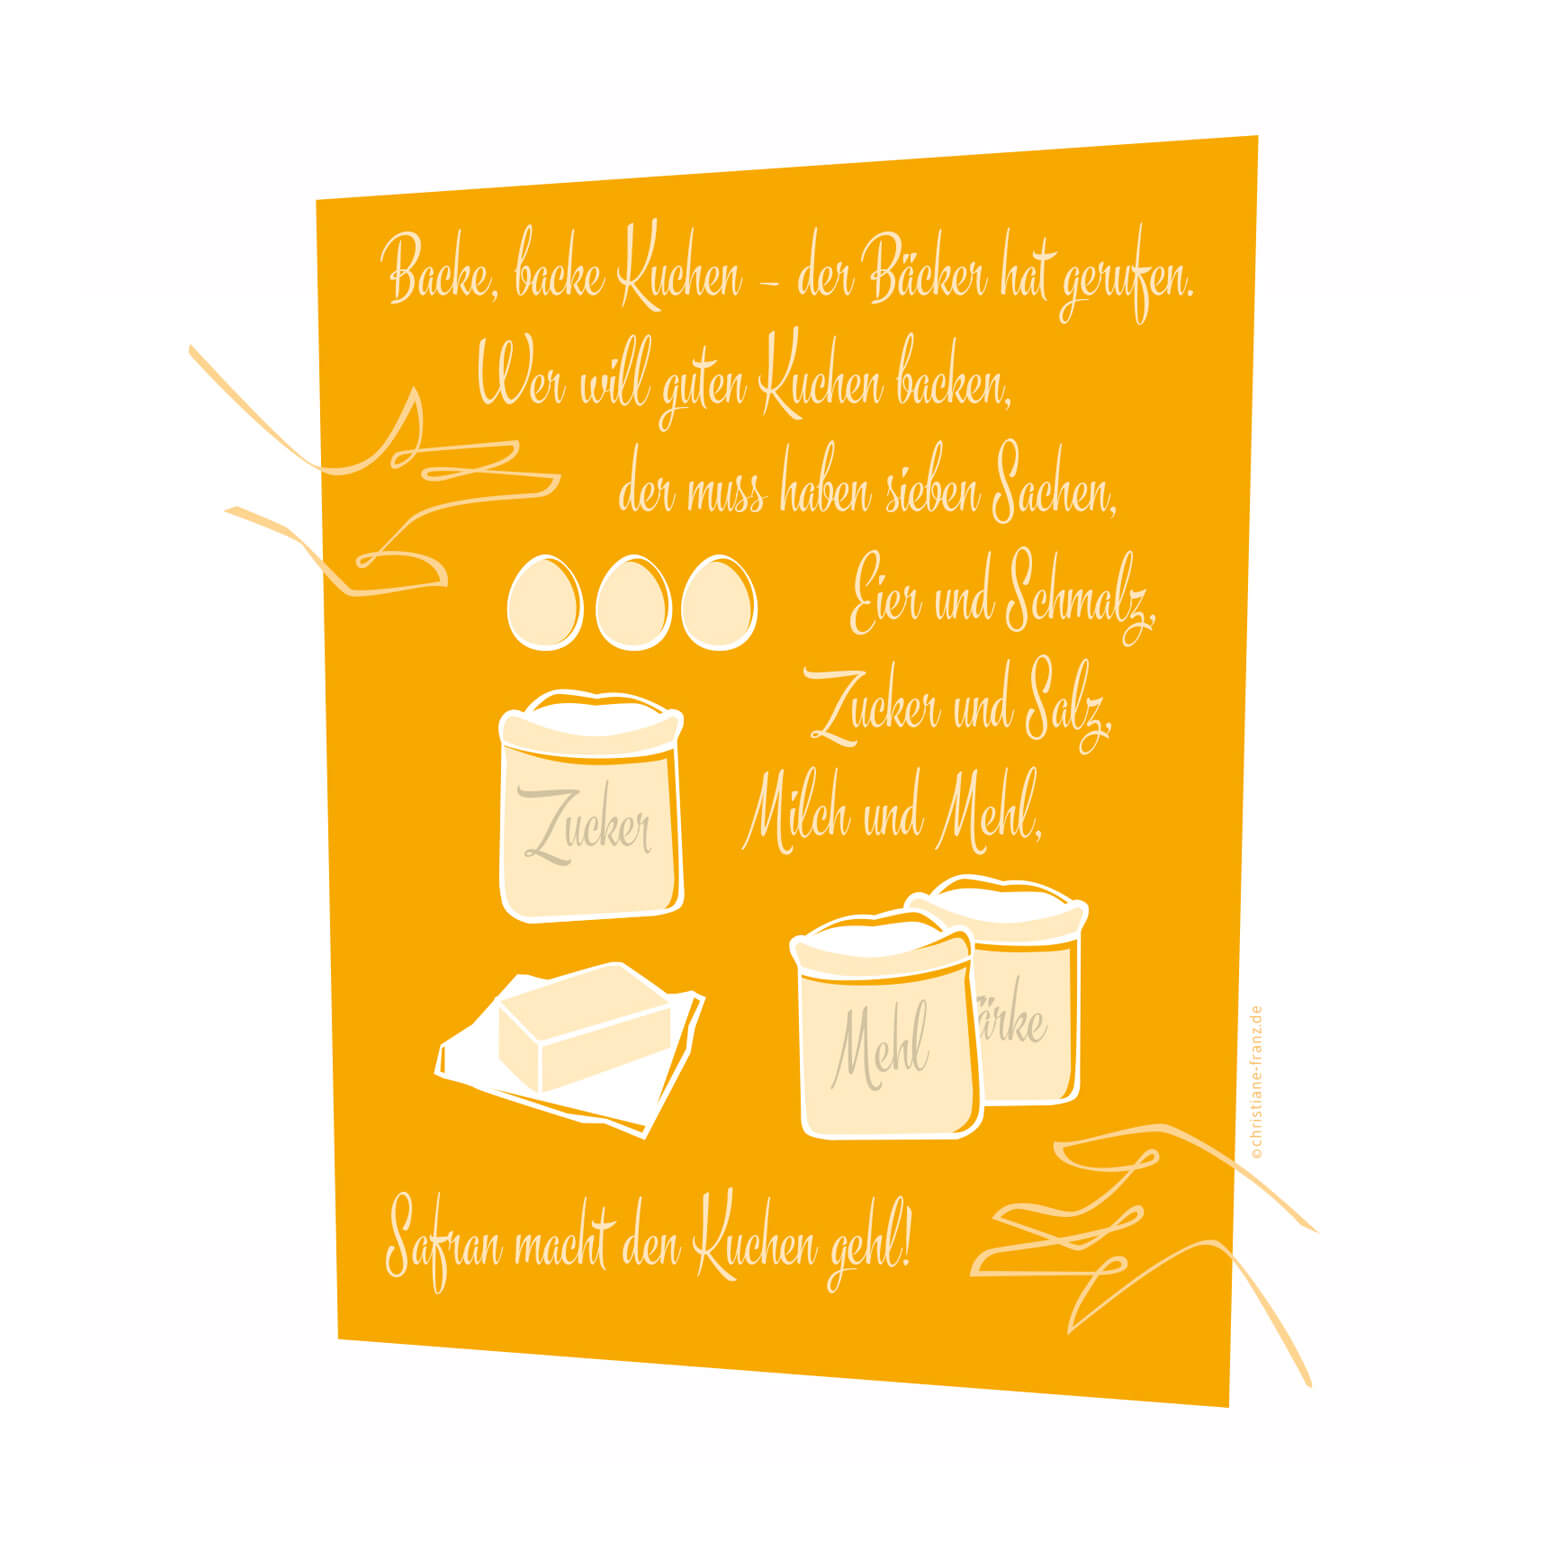 Backe, backe Kuchen – der Bäcker hat gerufen.
Wer will guten Kuchen backen,
der muss haben sieben Sachen,
Eier und Schmalz,
Zucker und Salz,
Milch und Mehl,
Zucker
Mehl
ärke
Safran macht den Kuchen gehl!
©christiane-franz.de